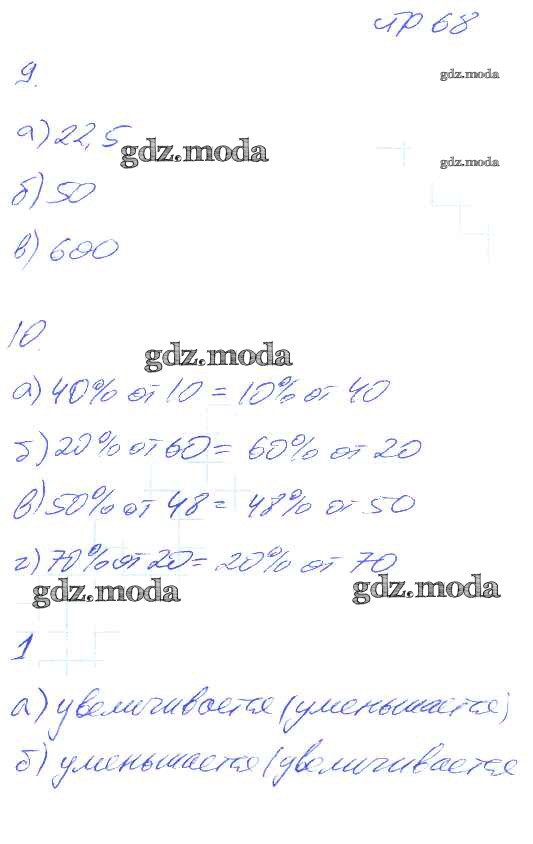 стр 68
9.
gdz.moda
а) 22,5
gdz.moda
gdz.moda
б) 50
в) 600
10.
gdz.moda
а) 40% от 10 = 10% от 40
б) 20% от 60 = 60% от 20
в) 50% от 48 = 48% от 50
г) 70% от 20 = 20% от 70
gdz.moda
gdz.moda
1
а) увеличивается (уменьшается)
б) уменьшается (увеличивается